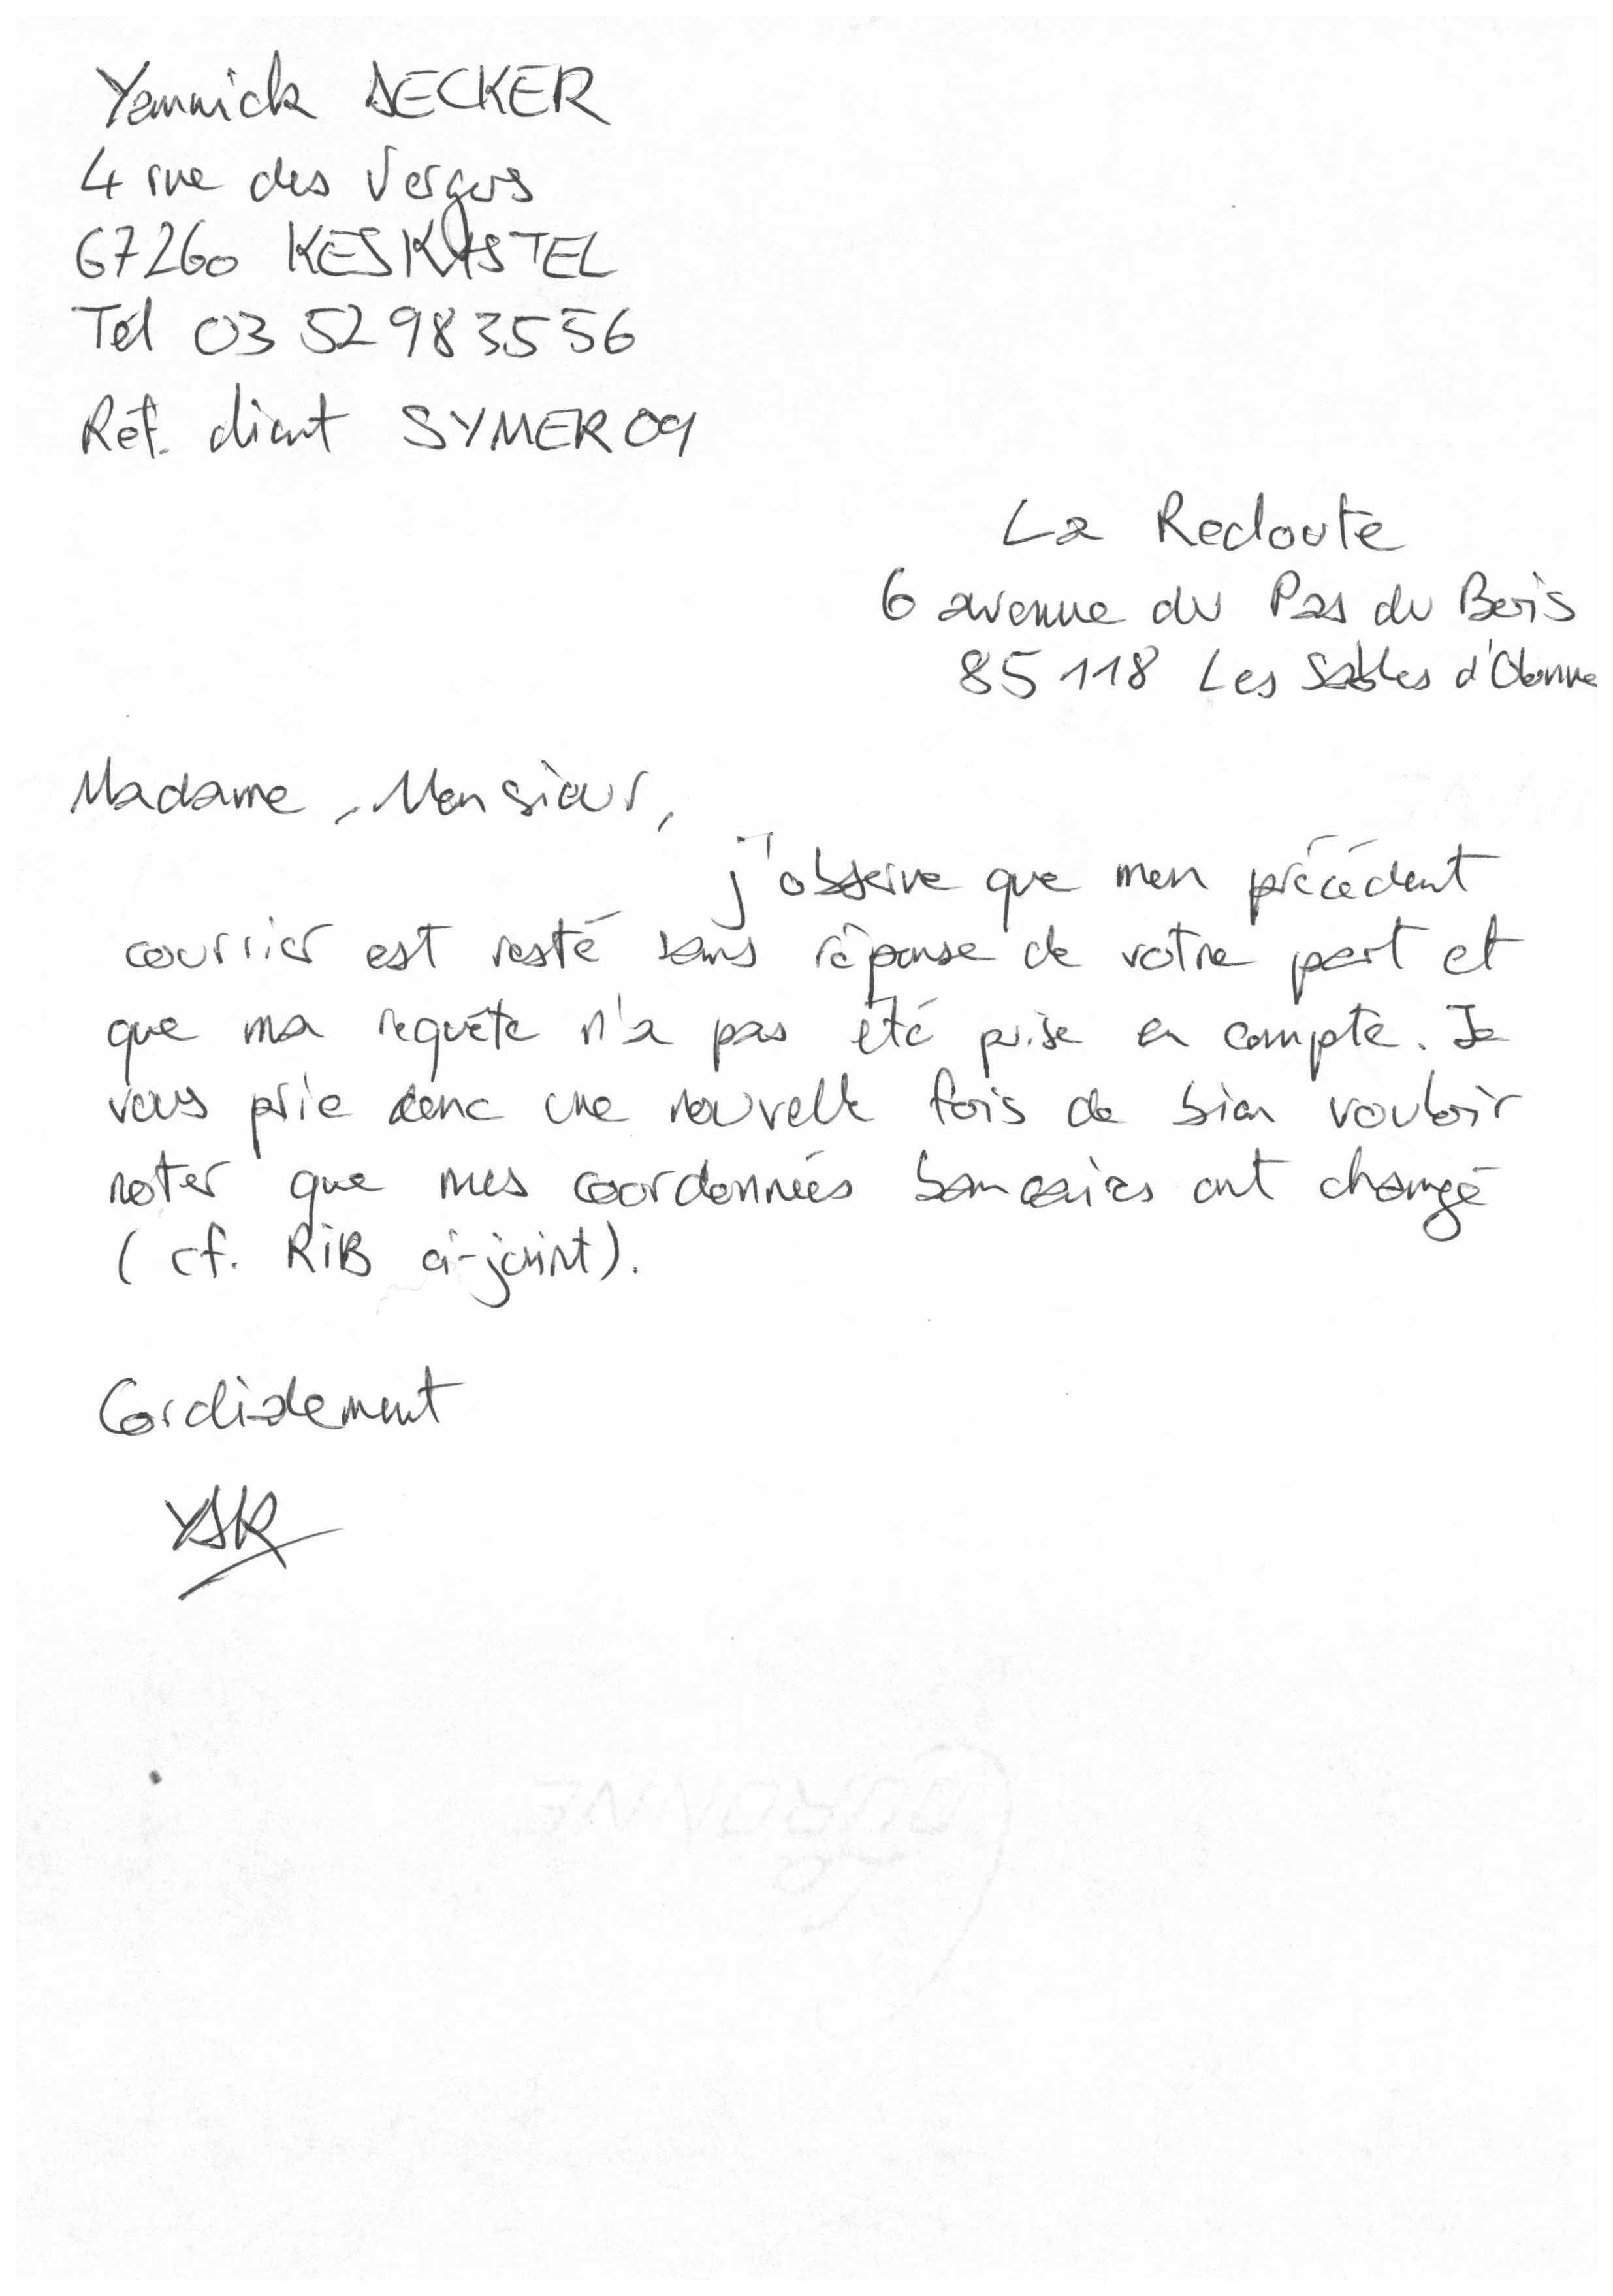 Yannick DECKER
4 rue des Vergers
67260 KESKASTEL
Tél 03 52 98 35 56
Réf. client SYMER09
La Redoute
6 avenue du Pas du Bois
85118 Les Sables d'Olonne
Madame, Monsieur,
j'observe que mon précédent
courrier est resté sans réponse de votre part et
que ma requête n'a pas été prise en compte. Je
vous prie donc une nouvelle fois de bien vouloir
noter que mes coordonnées bancaires ont changé
(cf. RIB ci-joint).
Cordialement